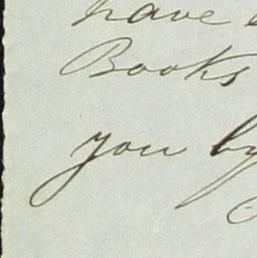 have
Books
you by